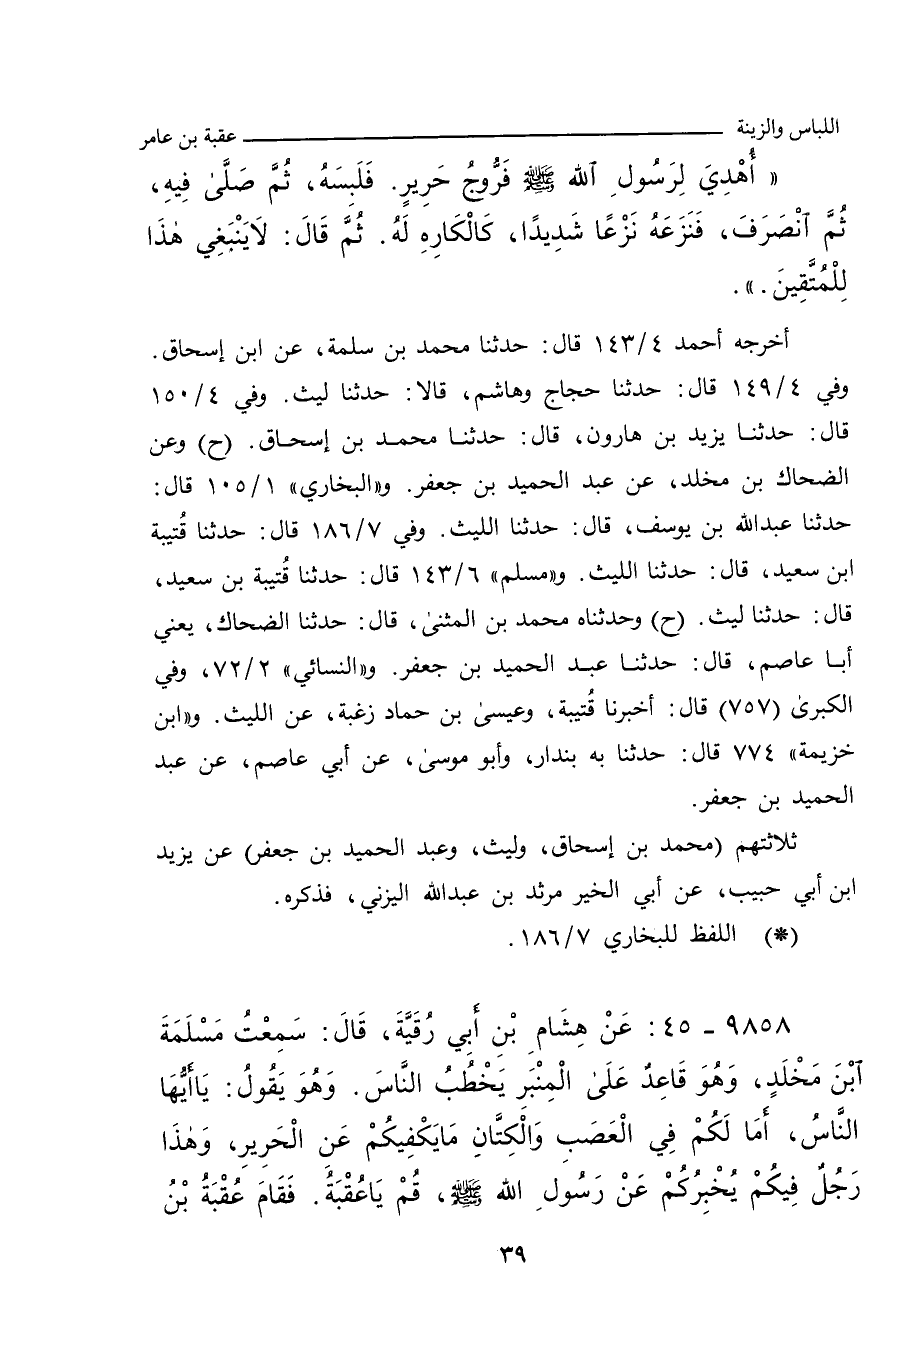 اللباس والزينة ـــــــــ عقبة بن عامر
« أُهْدِيَ لِرَسُولِ ٱللهِ ﷺ فَرُّوجُ حَرِيرٍ. فَلَبِسَهُ، ثُمَّ صَلَّىٰ فِيهِ،
ثُمَّ ٱنْصَرَفَ، فَنَزَعَهُ نَزْعًا شَدِيدًا، كَالْكَارِهِ لَهُ. ثُمَّ قَالَ: لَايَنْبَغِي هٰذَا
لِلْمُتَّقِينَ. ».
أخرجه أحمد ١٤٣/٤ قال: حدثنا محمد بن سلمة، عن ابن إسحاق.
وفي ١٤٩/٤ قال: حدثنا حجاج وهاشم، قالا: حدثنا ليث. وفي ١٥٠/٤
قال: حدثنا يزيد بن هارون، قال: حدثنا محمد بن إسحاق. (ح) وعن
الضحاك بن مخلد، عن عبد الحميد بن جعفر. و«البخاري» ١٠٥/١ قال:
حدثنا عبدالله بن يوسف، قال: حدثنا الليث. وفي ١٨٦/٧ قال: حدثنا قُتيبة
ابن سعيد، قال: حدثنا الليث. و«مسلم» ١٤٣/٦ قال: حدثنا قُتيبة بن سعيد،
قال: حدثنا ليث. (ح) وحدثناه محمد بن المثنىٰ، قال: حدثنا الضحاك، يعني
أبا عاصم، قال: حدثنا عبد الحميد بن جعفر. و«النسائي» ٧٢/٢، وفي
الكبرىٰ (٧٥٧) قال: أخبرنا قُتيبة، وعيسىٰ بن حماد زغبة، عن الليث. و«ابن
خزيمة» ٧٧٤ قال: حدثنا به بندار، وأبو موسىٰ، عن أبي عاصم، عن عبد
الحميد بن جعفر.
ثلاثتهم (محمد بن إسحاق، وليث، وعبد الحميد بن جعفر) عن يزيد
ابن أبي حبيب، عن أبي الخير مرثد بن عبدالله اليزني، فذكره.
(*) اللفظ للبخاري ١٨٦/٧.
٩٨٥٨ ـ ٤٥: عَنْ هِشَامِ بْنِ أَبِي رُقَيَّةَ، قَالَ: سَمِعْتُ مَسْلَمَةَ
ٱبْنَ مَخْلَدٍ، وَهُوَ قَاعِدٌ عَلَىٰ الْمِنْبَرِ يَخْطُبُ النَّاسَ. وَهُوَ يَقُولُ: يَاأَيُّهَا
النَّاسُ، أَمَا لَكُمْ فِي الْعَصَبِ وَالْكِتَّانِ مَايَكْفِيكُمْ عَنِ الْحَرِيرِ، وَهٰذَا
رَجُلٌ فِيكُمْ يُخْبِرُكُمْ عَنْ رَسُولِ اللهِ ﷺ، قُمْ يَاعُقْبَةُ. فَقَامَ عُقْبَةُ بْنُ
٣٩